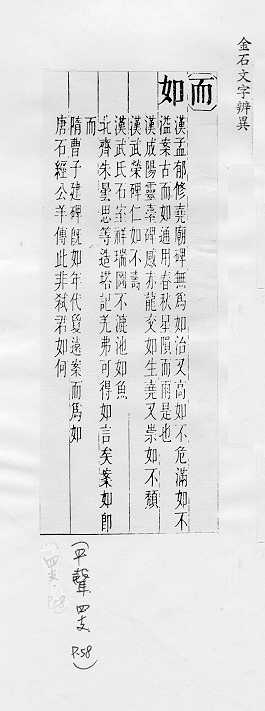 金石文字辨異
而
如
漢孟郁修堯廟碑無為如治又高如不危滿如不
溢案古而如通用春秋星隕而雨是也
漢成陽靈臺碑感赤龍交如生堯又崇如不頹
漢武榮碑仁如不壽
漢武氏石室祥瑞圖不漉池如魚
北齊朱曇思等造塔記羌弗可得如言矣案如即
而
隋曹子建碑既如年代敻遠案而為如
唐石經公羊傳此非弒君如何
(平聲四支 P.58)
(四支 P.58